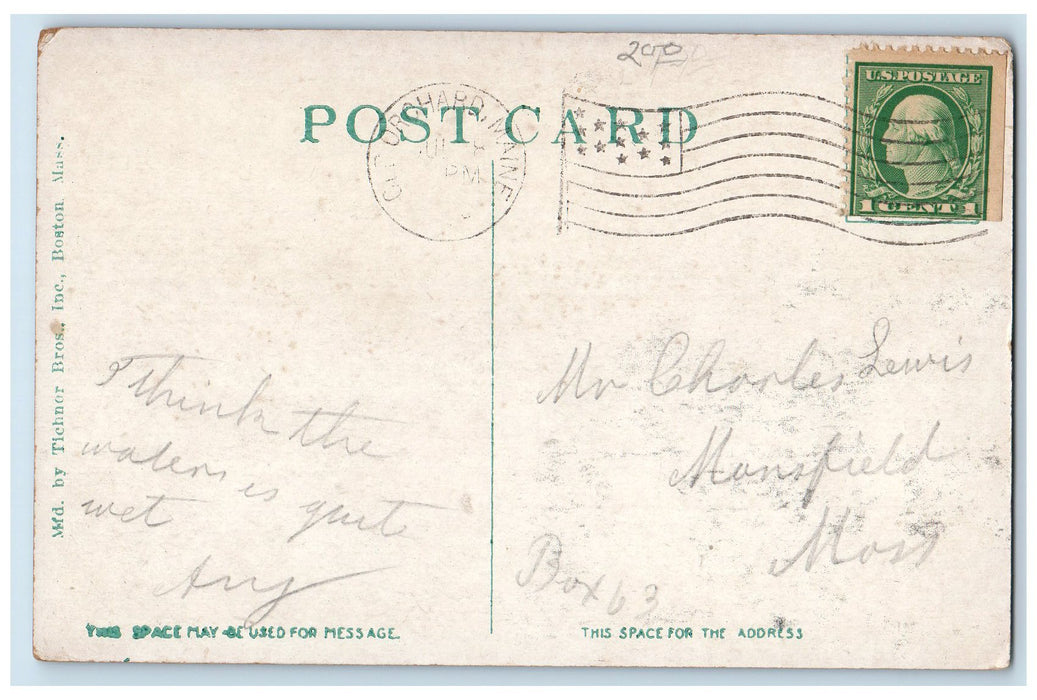 200
POST CARD
OLD ORCHARD, MAINE
JUL 8
PM
U.S. POSTAGE
1 CENT 1
Mfd. by Tichnor Bros., Inc., Boston Mass.
I think the
waters is quite
wet
Mr Charles Lewis
Mansfield
Mass
Box 63
THIS SPACE MAY BE USED FOR MESSAGE.
THIS SPACE FOR THE ADDRESS